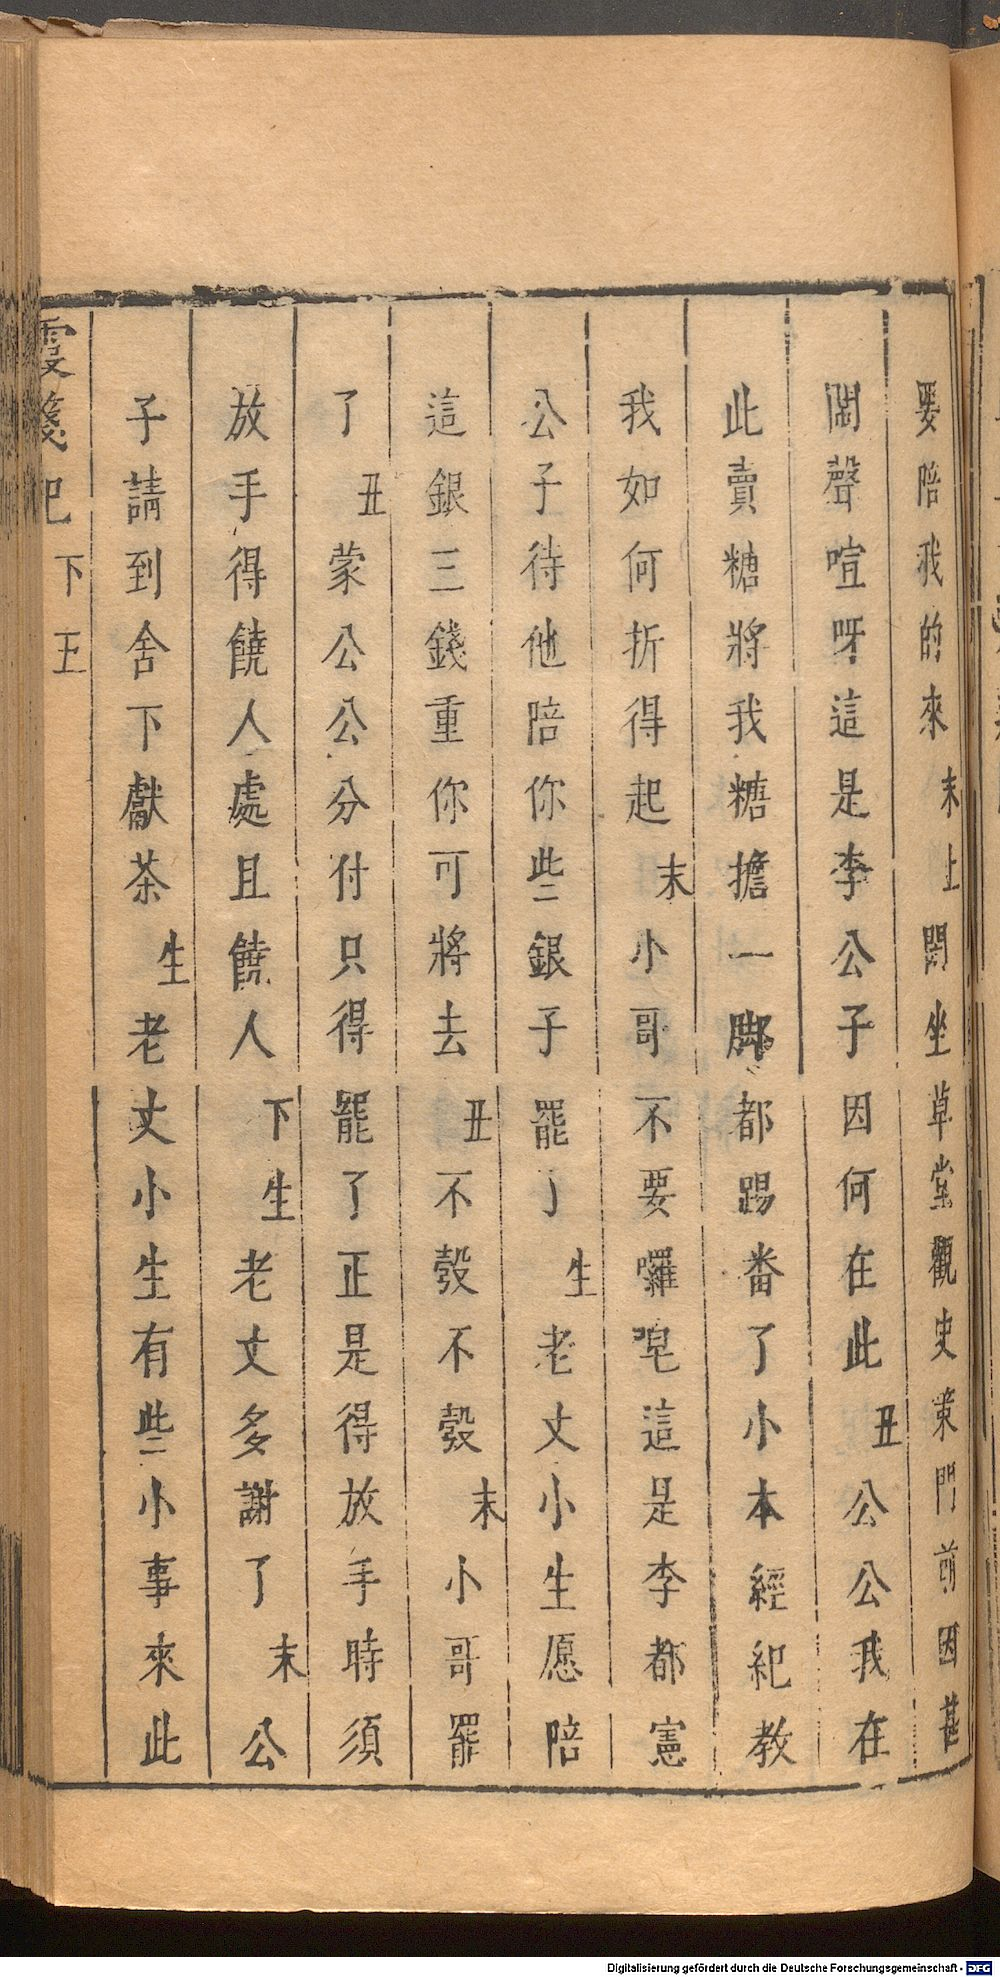 要陪我的來末上閒坐草堂觀史策門前因甚
閙聲喧呀這是李公子因何在此丑公公我在
此賣糖將我糖擔一脚都踢番了小本經紀教
我如何折得起末小哥不要囉唣這是李都憲
公子待他陪你些銀子罷了生老丈小生愿陪
這銀三錢重你可將去丑不彀不彀末小哥罷
了丑蒙公公分付只得罷了正是得放手時須
放手得饒人處且饒人下生老丈多謝了末公
子請到舍下獻茶生老丈小生有些小事來此
霞箋記 下 王
Digitalisierung gefördert durch die Deutsche Forschungsgemeinschaft - DFG